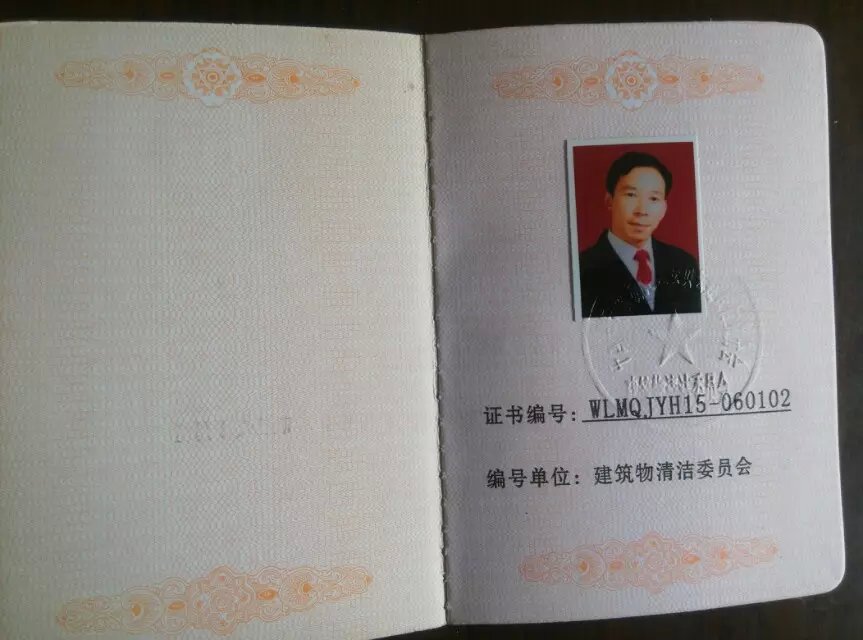 证书编号：WLMQJYH15-060102
编号单位：建筑物清洁委员会